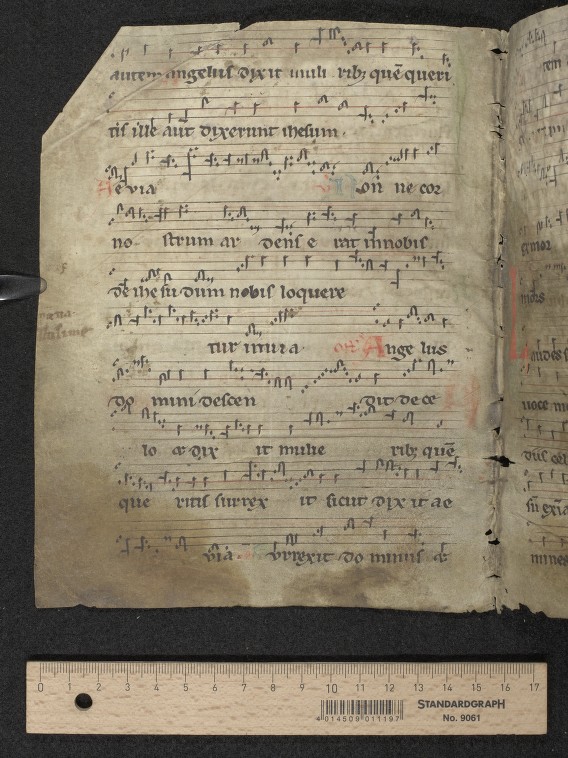 autem angelus dixit muli ribꝫ quē queri
tis ille aut̄ dixerunt ihesum.
Ae via Non ne cor
no strum ar dens e rat innobis
de ihesu dum nobis loquere
tur inuia off Ange lus
do mini descen dit de ce
lo et dix it mulie ribꝫ quē
que ritis surrex it sicut dix it ae
via urrexit dominus et
tem
L
audes
uoce
mines
0 1 2 3 4 5 6 7 8 9 10 11 12 13 14 15 16 17
4 014509 011197
STANDARDGRAPH
No. 9061